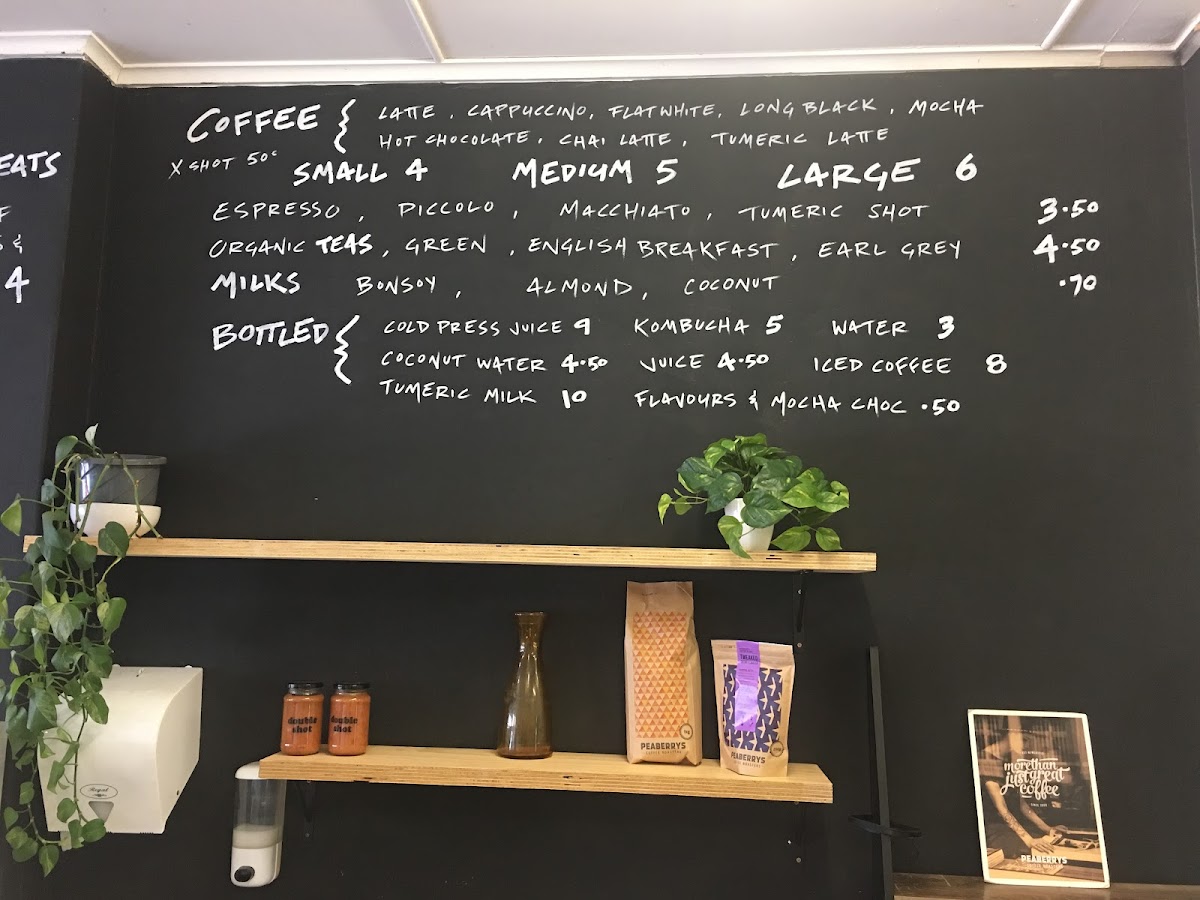 EATS
F
S &
4
COFFEE { LATTE , CAPPUCCINO, FLAT WHITE, LONG BLACK , MOCHA
HOT CHOCOLATE , CHAI LATTE , TUMERIC LATTE
X SHOT 50c
SMALL 4 MEDIUM 5 LARGE 6
ESPRESSO , PICCOLO , MACCHIATO , TUMERIC SHOT 3.50
ORGANIC TEAS , GREEN , ENGLISH BREAKFAST , EARL GREY 4.50
MILKS BONSOY , ALMOND , COCONUT .70
BOTTLED { COLD PRESS JUICE 9 KOMBUCHA 5 WATER 3
COCONUT WATER 4.50 JUICE 4.50 ICED COFFEE 8
TUMERIC MILK 10 FLAVOURS & MOCHA CHOC .50
double
shot
double
shot
PEABERRYS
COFFEE ROASTERS
PEABERRYS
more than
just great
coffee
PEABERRYS